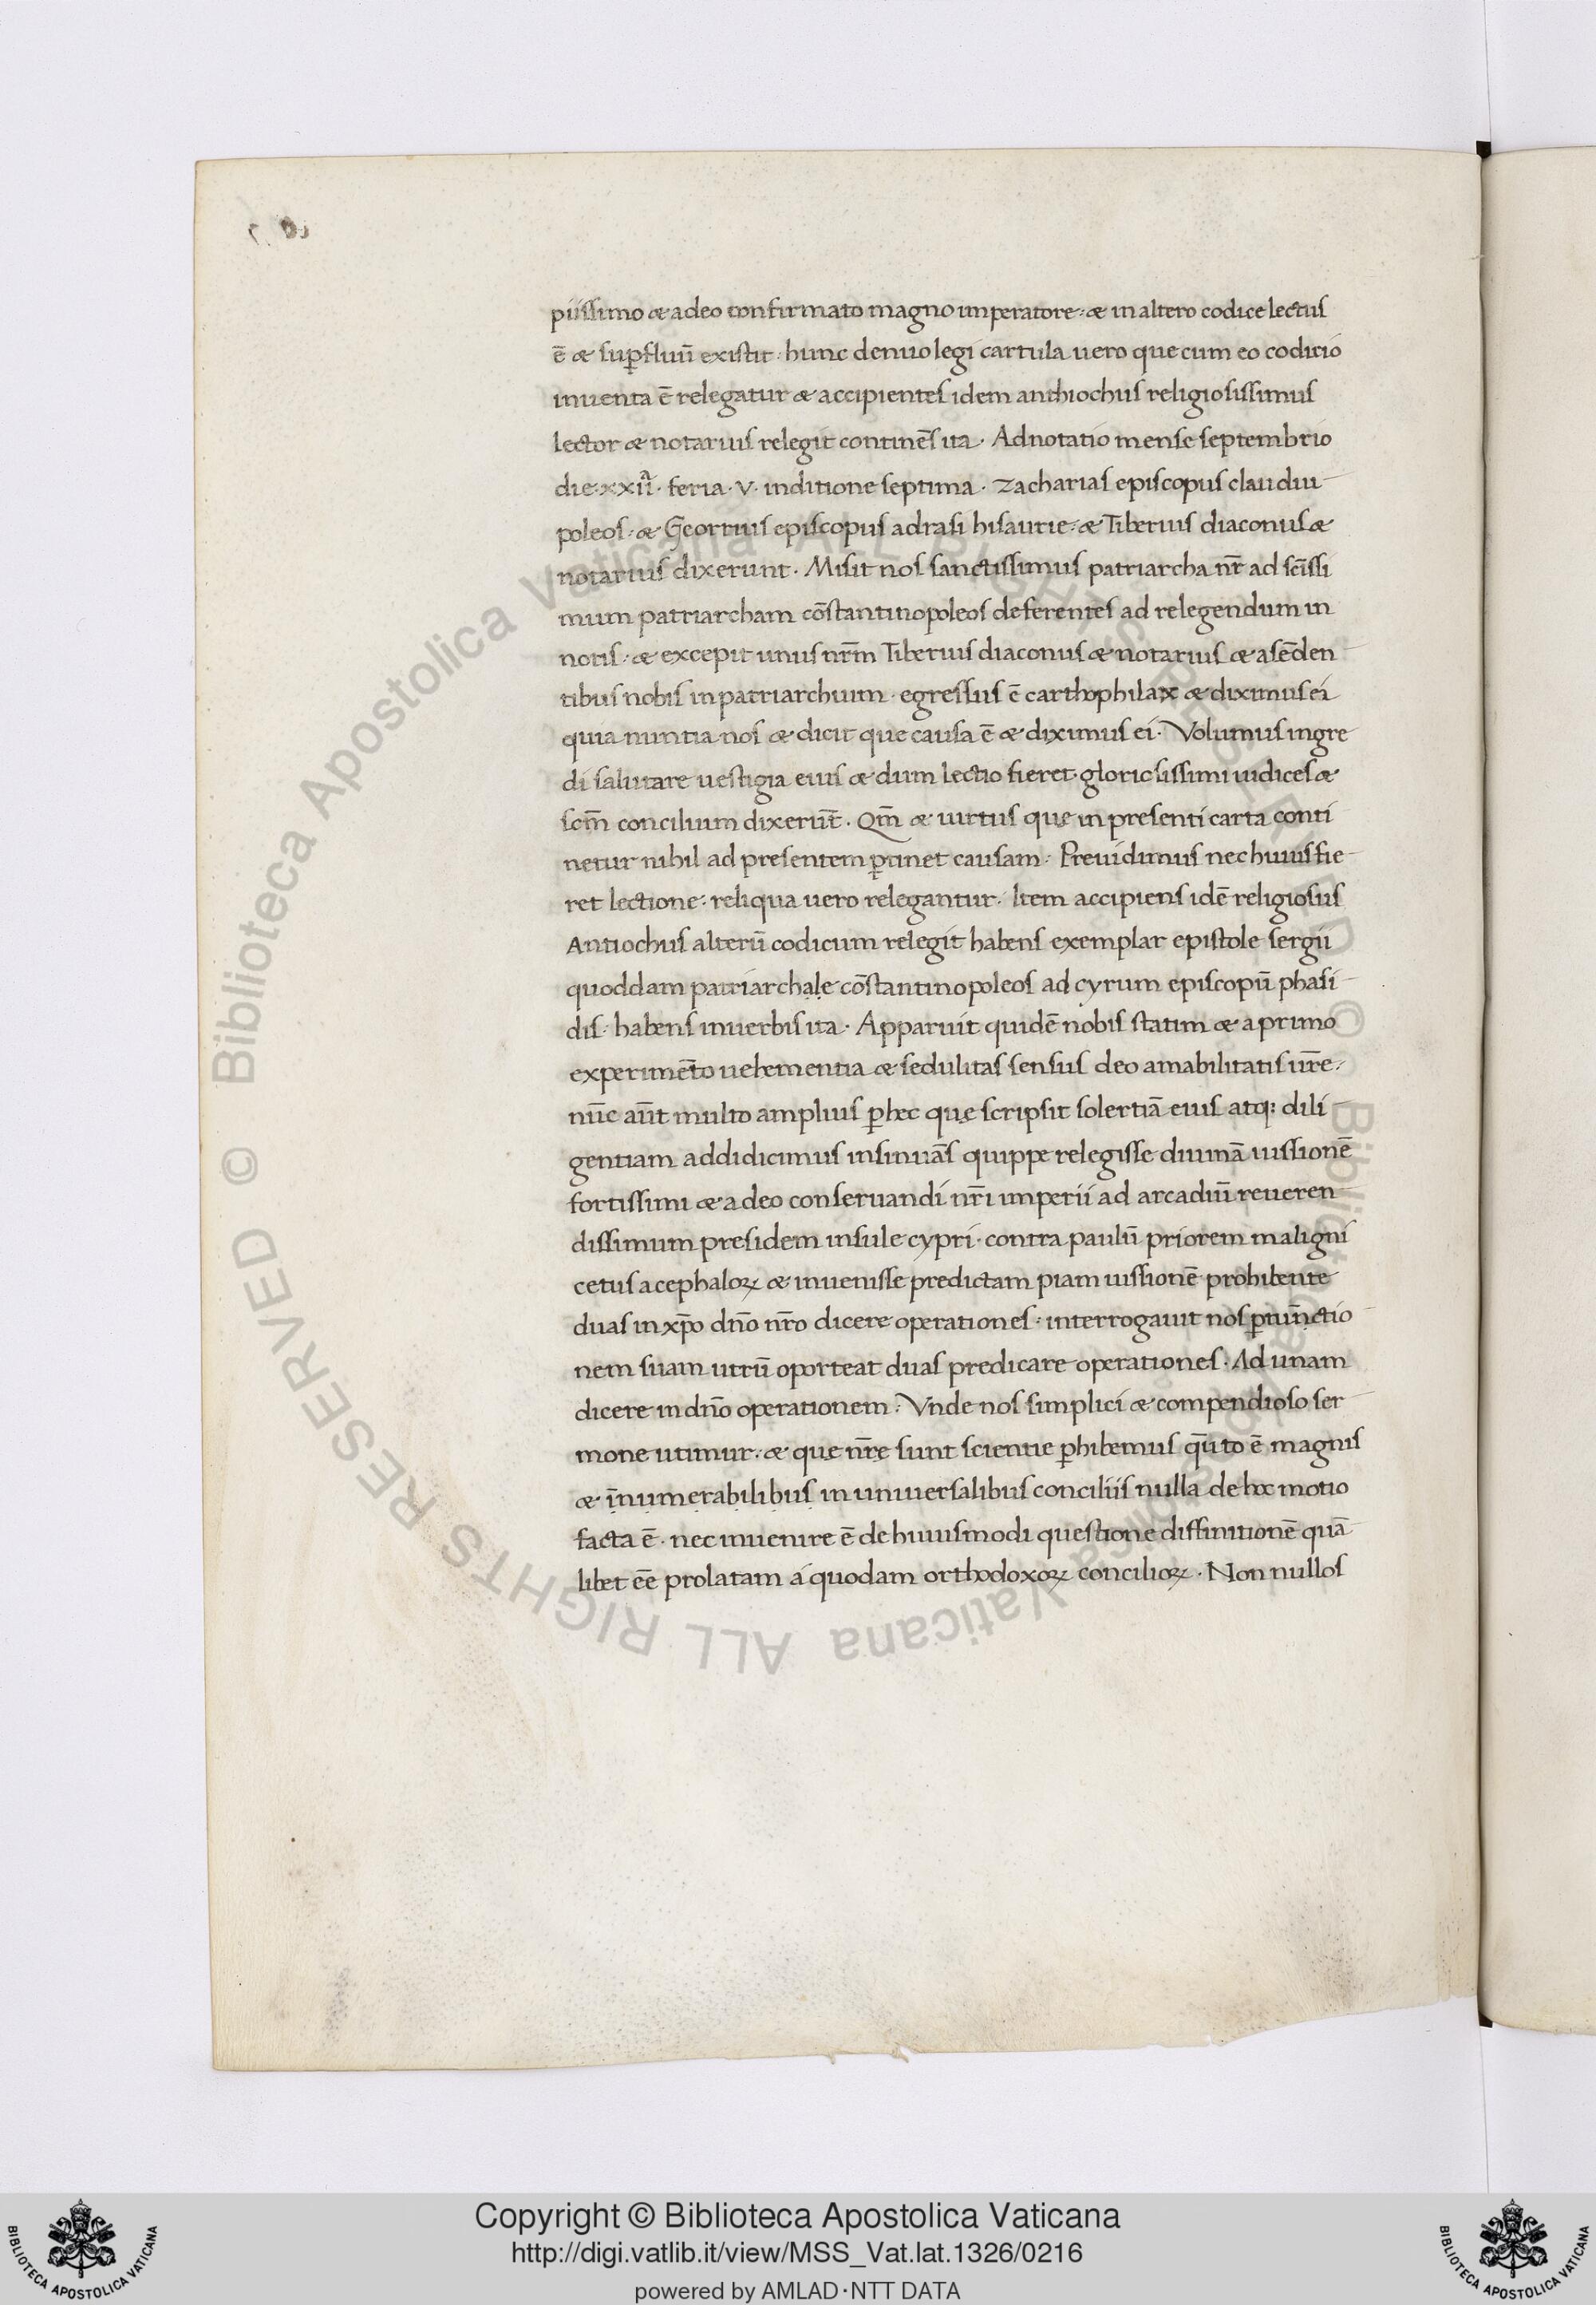 piissimo & adeo confirmato magno imperatore · & in altero codice lectus
ē & suꝑfluū existit · hunc denuo legi cartula uero que cum eo codicio
inuenta ē relegatur & accipientes idem anthiochus religiosissimus
lector & notarius relegit continēs ita · Adnotatio mense septembrio
die · xxii · feria · v · inditione septima · Zacharias episcopus claudiu
poleos · & Georrius episcopus adrasi hisaurie · & Tiberius diaconus &
notarius dixerunt · Misit nos sanctissimus patriarcha nr̄ ad sc̄issi
mum patriarcham cōstantinopoleos deferentes ad relegendum in
notis · & excepit unus nr̄m Tiberius diaconus & notarius & asēden
tibus nobis in patriarchium · egressus ē carthophilax & diximus ei
quia nuntia nos & dicit que causa ē & diximus ei · Volumus ingre
di salutare uestigia eius & dum lectio fieret · gloriosissimi iudices &
sc̄m concilium dixerūt · Qm̄ & uirtus que in presenti carta conti
netur nihil ad presentem ꝑtinet causam · Preuidimus nec huius fie
ret lectione · reliqua uero relegantur · Item accipiens idē religiosus
Antiochus alterū codicum relegit habens exemplar epistole sergii
quoddam patriarchale cōstantinopoleos ad cyrum episcopū phasi
dis · habens in uerbis ita · Apparuit quidē nobis statim & a primo
experimēto uehementia & sedulitas sensus deo amabilitatis ur̄e ·
nūc aūt multo amplius ꝑ hec que scripsit solertiā eius atq: dili
gentiam addidicimus insinuās quippe relegisse diuinā iussionē
fortissimi & a deo conseruandi nr̄i imperii ad arcadiū reueren
dissimum presidem insule cypri · contra paulū priorem maligni
cetus acephaloꝝ & inuenisse predictam piam iussionē prohibente
duas in xp̄o dn̄o nr̄o dicere operationes · interrogauit nos ꝑiūnctio
nem suam utrū oporteat duas predicare operationes · Ad unam
dicere in dn̄o operationem · Vnde nos simplici & compendioso ser
mone utimur · & que nr̄e sunt scientie ꝑhibemus qūto ē magnis
& īnumerabilibus in uniuersalibus conciliis nulla de hoc motio
facta ē · nec inuenire ē de huiusmodi questione diffinitionē quā
libet eē prolatam á quodam orthodoxoꝝ concilioꝝ · Non nullos
Copyright © Biblioteca Apostolica Vaticana
http://digi.vatlib.it/view/MSS_Vat.lat.1326/0216
powered by AMLAD·NTT DATA
BIBLIOTECA APOSTOLICA VATICANA
BIBLIOTECA APOSTOLICA VATICANA
© Biblioteca Apostolica Vaticana ALL RIGHTS RESERVED
© Biblioteca Apostolica Vaticana ALL RIGHTS RESERVED